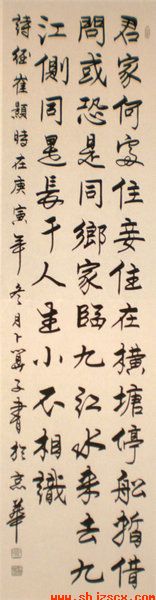 君家何處住妾住在橫塘停船暫借
問或恐是同鄉家臨九江水来去九
江側同是長干人生小不相識
詩崔顥時在庚寅年冬月書於京華
www.shjzscx.com